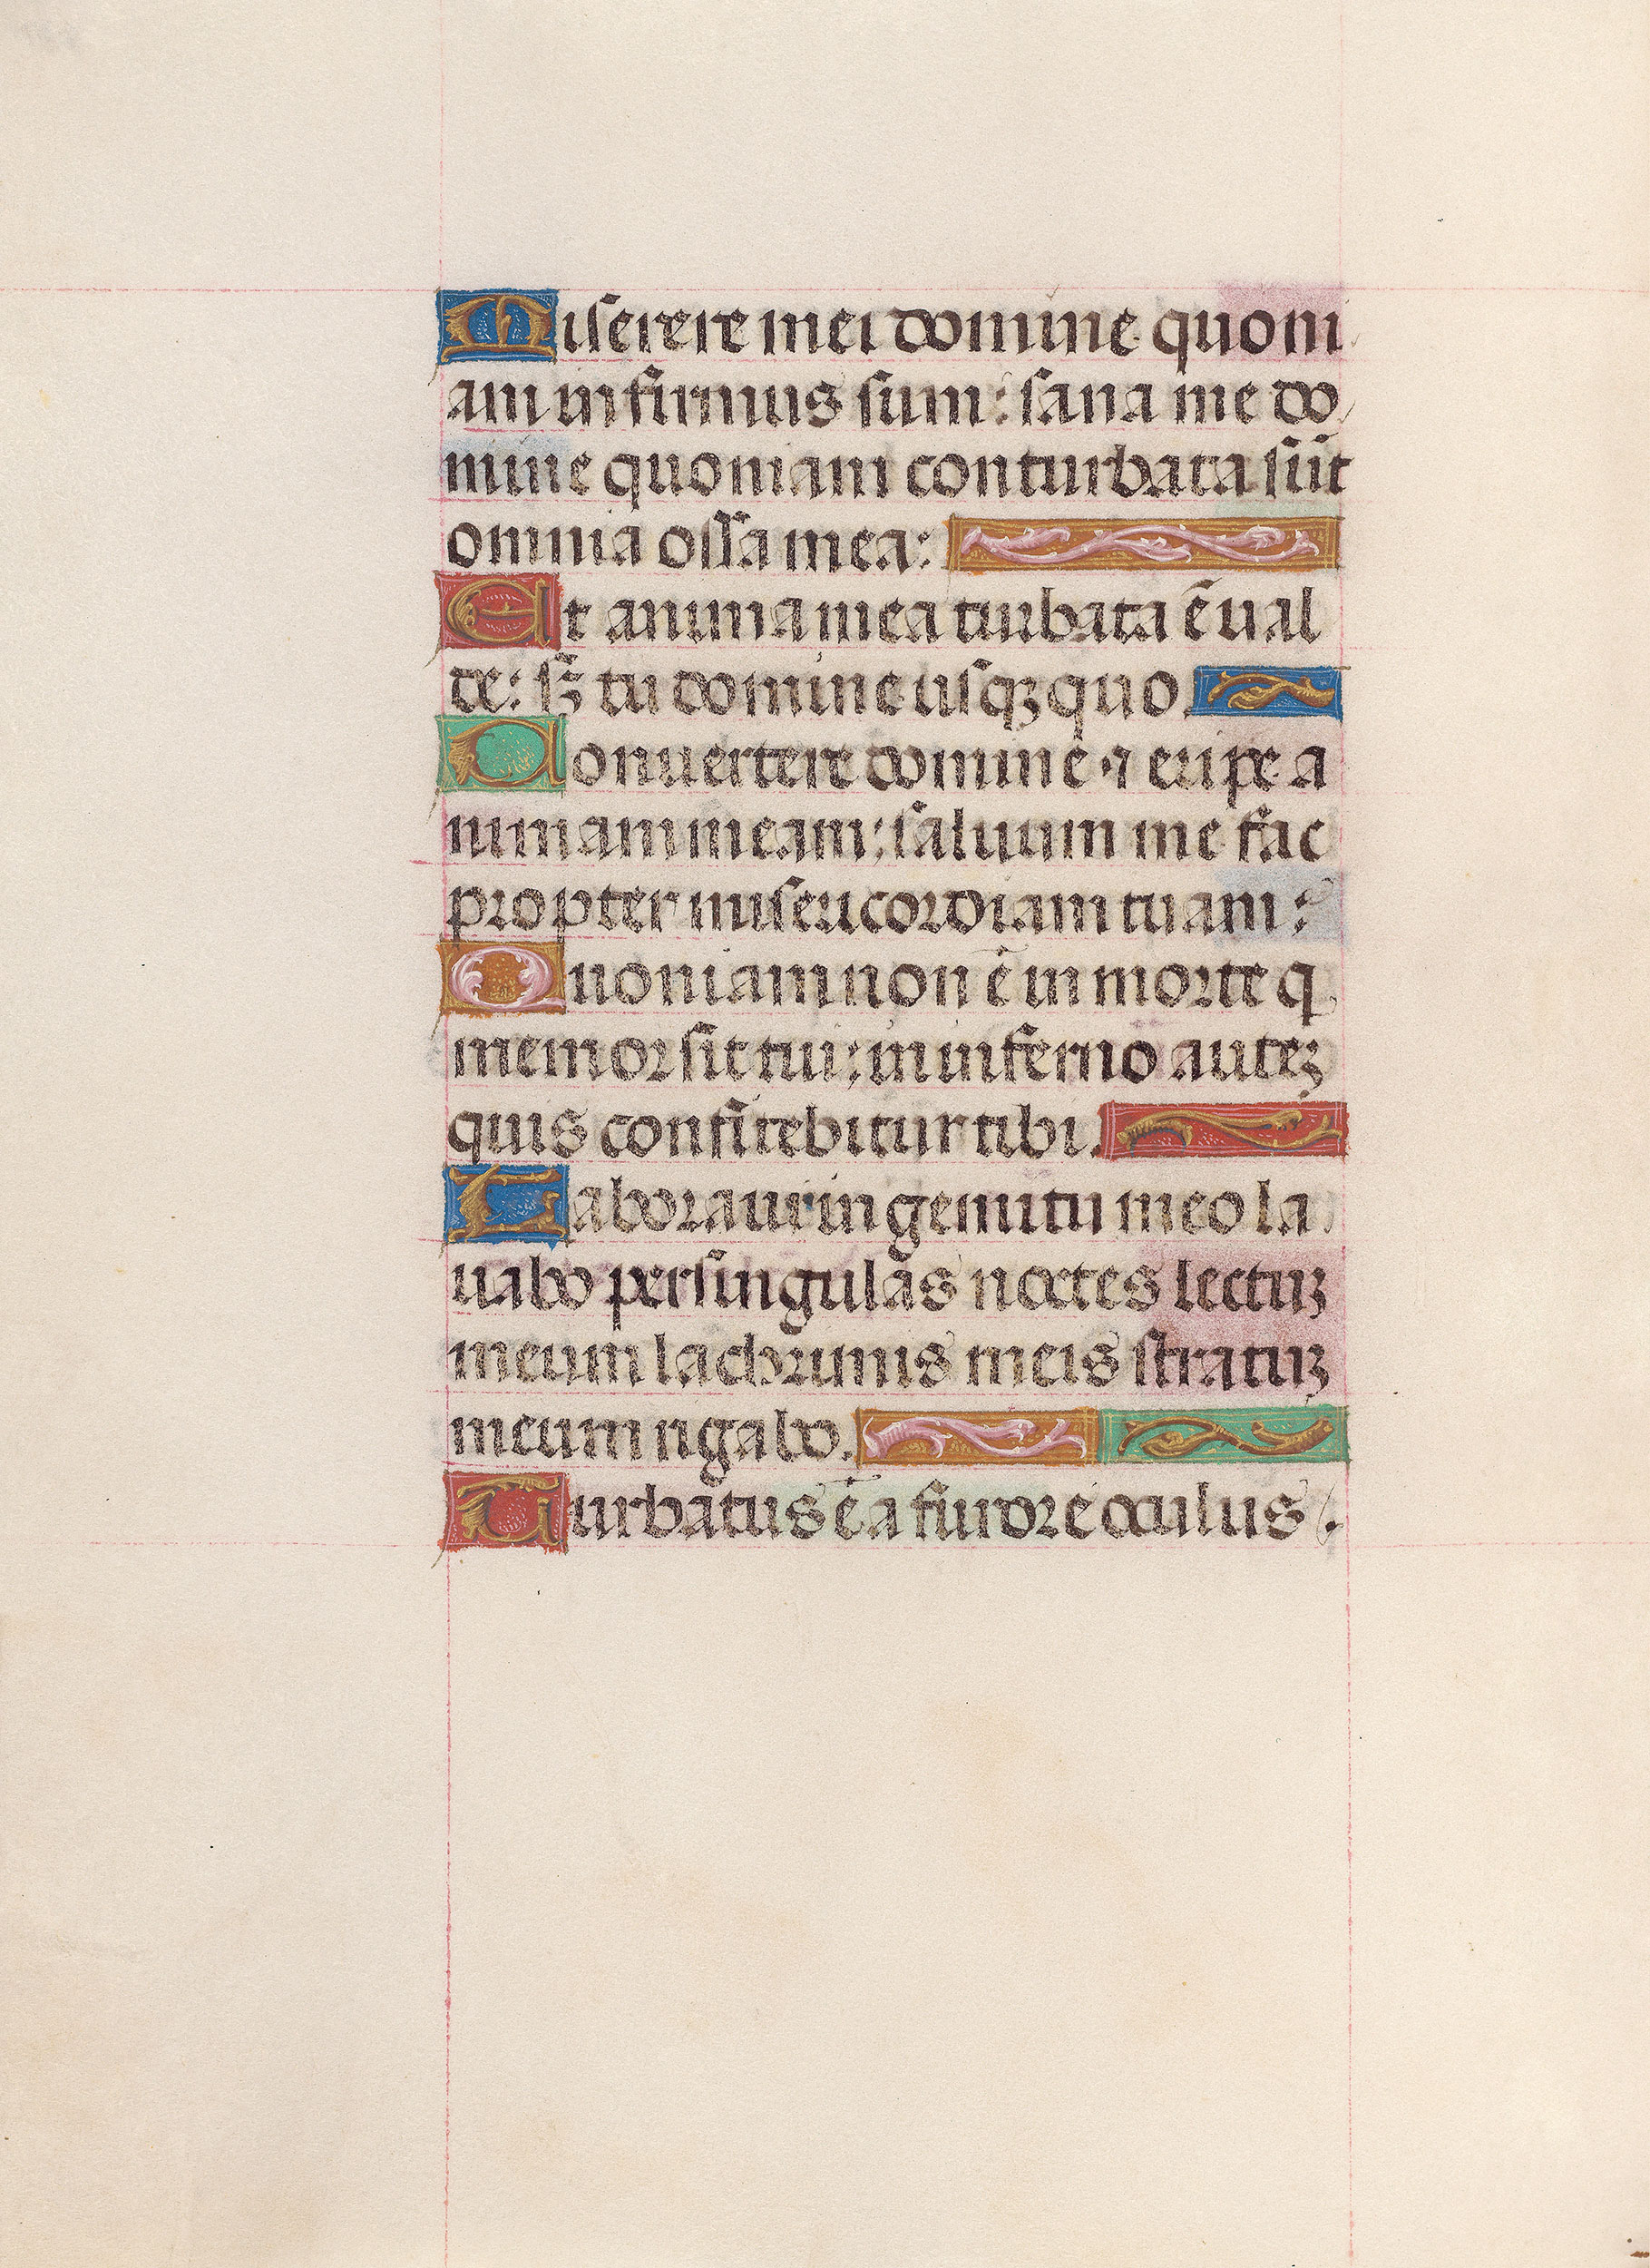 Miserere mei domine quoni
am infirmus sum: sana me do
mine quoniam conturbata sūt
omnia ossa mea:
Et anima mea turbata ē ual
de: sꝫ tu domine usqꝫ quo.
Conuertere domine ⁊ eripe a
nimam meam: saluum me fac
propter misericordiam tuam:
Quoniam non ē in morte q
memor sit tui: in inferno auteꝫ
quis confitebitur tibi.
Laboraui in gemitu meo la
uabo per singulas noctes lectuꝫ
meum lachrimis meis stratuꝫ
meum rigabo.
Turbatus ē a furore oculus.